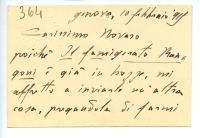 364
Genova, 10 febbraio 915
Carissimo Novaro
poiché Il famigerato Man-
goni è già in bozze, mi
affretto a inviarle un'altra
cosa, pregandola di farmi